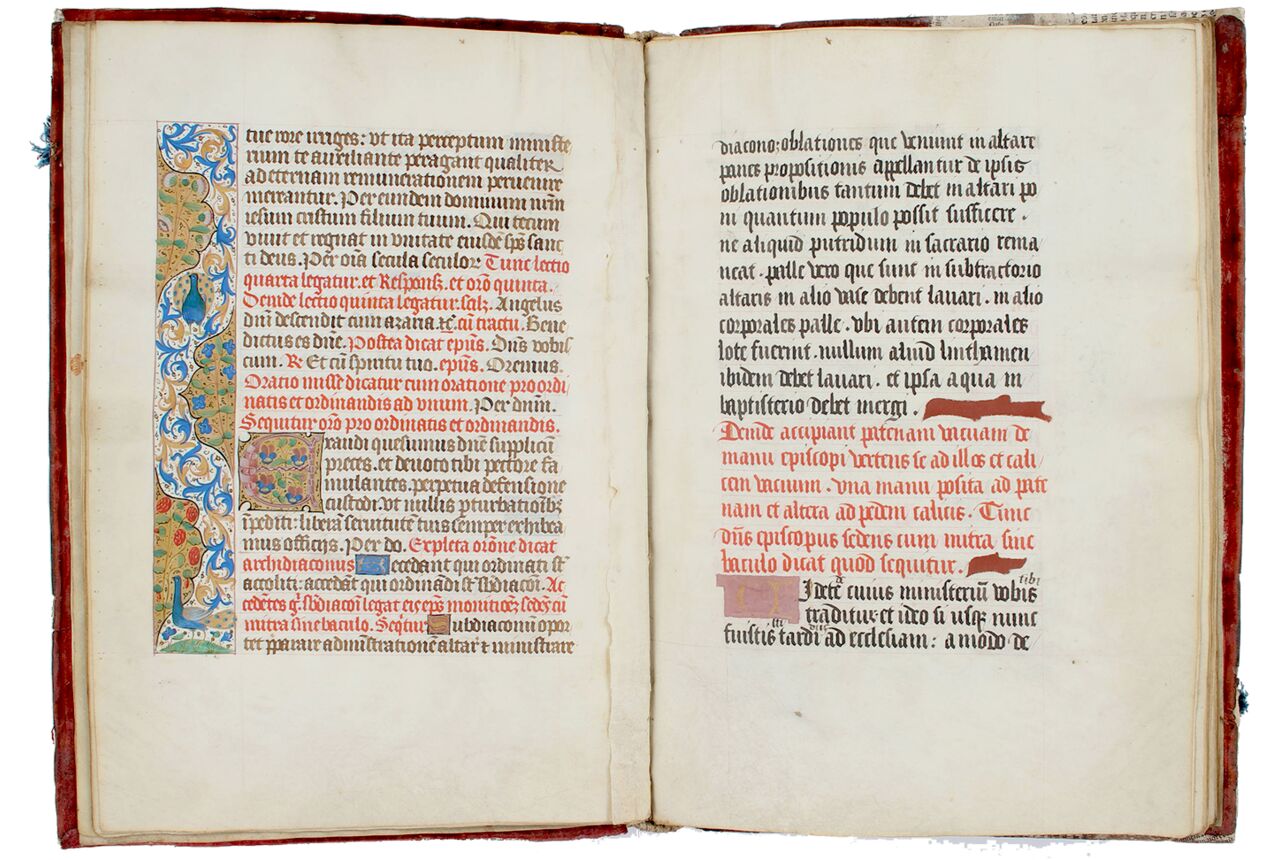 tue rore irriges: vt ita perceptum ministe
rium te auxiliante peragant qualiter
ad eternam remunerationem peruenire
merantur. Per eundem dominum nrm̄
iesum cristum filium tuum. Qui tecum
viuit et regnat in vnitate eiusdē sp̄s sanc
ti deus. Per oīa secula seculoꝝ Tunc lectio
quarta legatur. et Respons. et orō quinta.
Deinde lectio quinta legatur. scilꝫ. Angelus
dnī descendit cum azaria ⁊c̄. cū tractu. Bene
dictus es dn̄e. Postea dicat ep̄us. Dn̄s vobis
cum. R Et cū spiritu tuo. ep̄us. Oremus.
Oratio misse dicatur cum oratione pro ordi
natis et ordinandis ad vnum. Per dnm̄.
Sequitur orō pro ordinatis et ordinandis.
Exaudi quesumus dn̄e supplicū
preces. et deuoto tibi pectore fa
mulantes. perpetua defensione
custodi. vt nullis pturbationibꝫ
īpediti: liberā seruitutē tuis semper exhibea
mus officijs. Per do. Expleta orōne dicat
archidiaconus Accedant qui ordinati st̄
accoliti: accedāt qui ordinādi st̄ sbdiaconi. Ac
cedētes gͦ sbdiaconi legat eis ep̄s monitiōeꝫ sedēs cū
mitra sine baculo. Seq̄tur Subdiaconū opor
tet p̄parare administratione altaꝝ ⁊ ministrare
diacono; oblationes que veniunt in altare
panes propositionis appellantur de ipsis
oblationibus tantum debet in altari po
ni quantum populo possit sufficere.
ne aliquid putridum in sacrario rema
neat. palle vero que sunt in substractorio
altaris in alio vase debent lauari. in alio
corporales palle. vbi autem corporales
lote fuerint. nullum aliud linthamen
ibidem debet lauari. et ipsa aqua in
baptisterio debet mergi.
Deinde accipiant patenam vacuam de
manu episcopi vertens se ad illos et cali
cem vacuum. vna manu posita ad pate
nam et altera ad pedem calicis. Tunc
dn̄s episcopus sedens cum mitra sine
baculo dicat quod sequitur.
Uidete cuius ministeriū vobis tibi
traditur. et ideo si usque nunc
fuistis tardi ad ecclesiam: amodo de